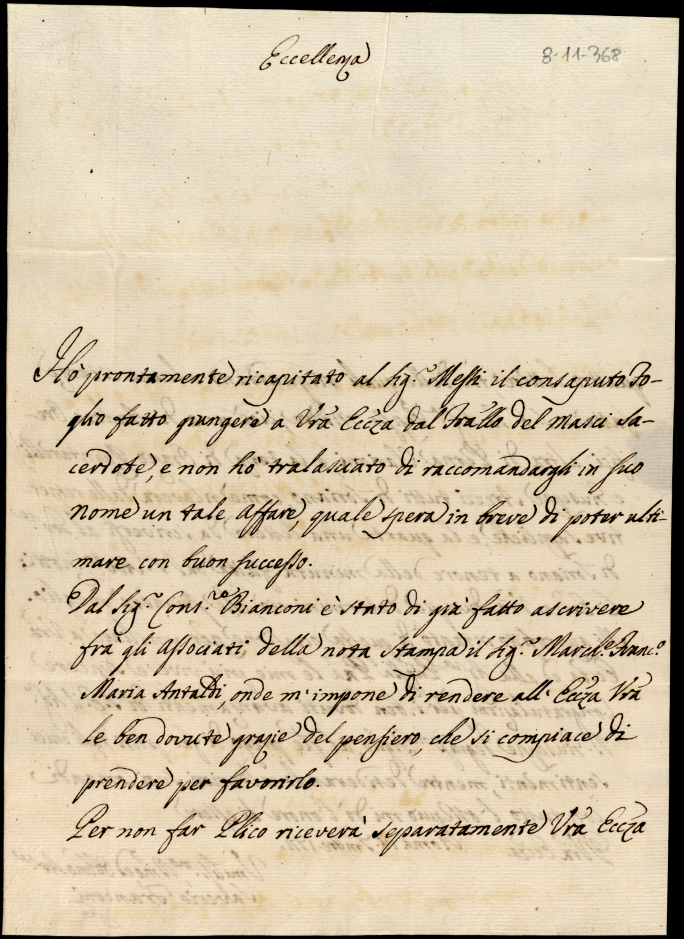 Eccellenza
8-11-368
Hò prontamente ricapitato al Sig.r Messi il consaputo Fo-
glio fatto giungere a Vrã Eccza dal Frallo del Masci Sa-
cerdote, e non hò tralasciato di raccomandargli in suo
nome un tale affare, quale spera in breve di poter ulti-
mare con buon successo.
Dal Sig.r Cons.re Bianconi è stato di già fatto ascrivere
frà gli Associati della nota Stampa il Sig.r March.e Franc.o
Maria Antaldi, onde m'impone di rendere all' Eccza Vrã
le ben dovute grazie del pensiero, che si compiace di
prendere per favorirlo.
Per non far Plico riceverà separatamente Vrã Eccza